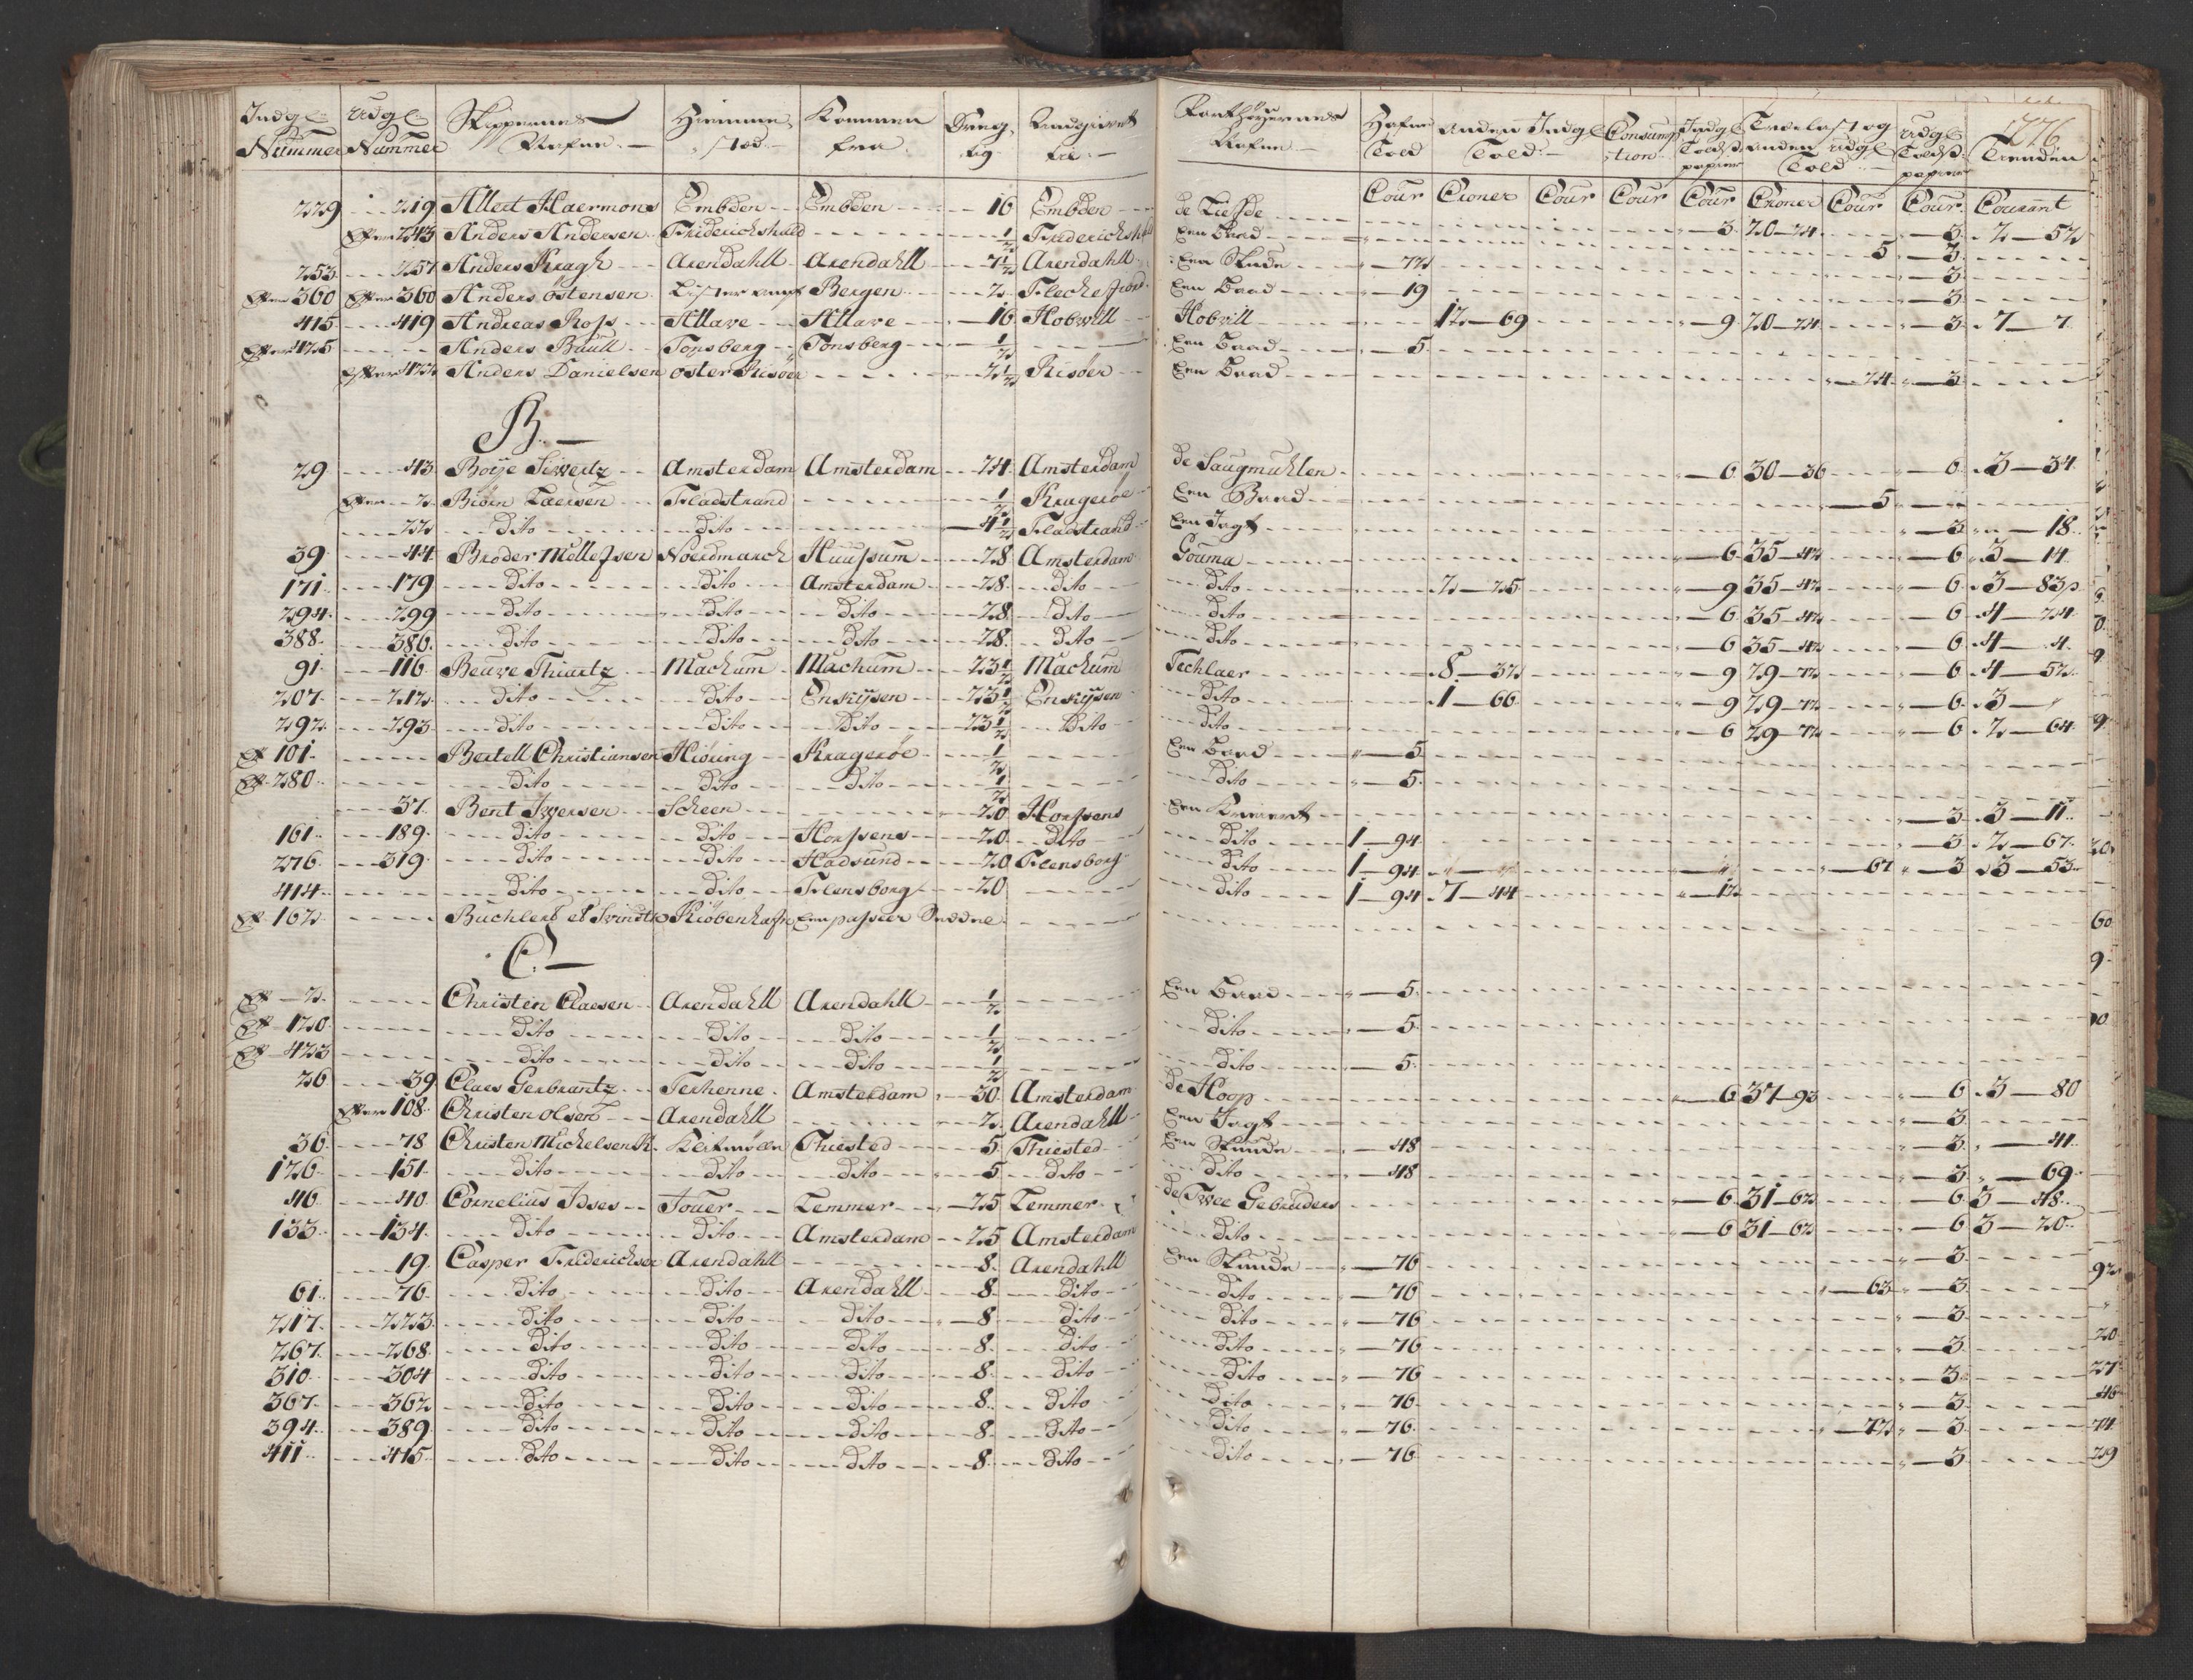 Indg: Udg: Skippernes Hiemme- Kommen Dræg- Angivet Farthöyernes Hafne Anden Indg: Consump Indg: Trælast og Udg: 776
Nummer Nummer Nafne. stæd fra tig til Nafne Told Told tion Toldst: anden udg: Toldst: Tienden
papier Told papier
Cour Croner Cour Cour Cour Croner Cour Cour Courant
229 219 Allert Haermons Embden Embden 16 Embden de Liefde 3 20-24 3 2-52
243 Anders Andersen Friderichshald 1/2 Friderichshald Een Baad 5 3
253 257 Anders Kragh Arendahll Arendahll 7 1/2 Arendahll Een Skude 72 3
360 360 Anders Östensen Lister amt Bergen 2 Fleckefiord Een Baad 19 3
415 419 Andreas Ross Allave Allave 16 Hobvill Hobvill 12-69 9 20-24 3 7-7
425 Anders Buull Tonsberg Tonsberg 1/2 Een Baad 5
422 Anders Danielsen Öster Risöer 2 1/2 Risöer Een Baad 24 3
B.
29 43 Boije Siwertz Amsterdam Amsterdam 24 Amsterdam de Saugmuhlen 6 30-36 6 3-34
2 Biörn Laersen Fladstrand 1/2 Krageröe Een Baad 5
22 Dito Dito 4 1/2 Fladstrand Een Jagt 3 18
39 44 Broder Mollessen Noerdmarch Huusum 28 Amsterdam Gouma 6 35-42 6 3-14
171 179 Dito Dito Amsterdam 28 Dito Dito 2-25 9 35-42 6 3-83
294 299 Dito Dito Dito 28 Dito Dito 6 35-42 6 4-24
388 386 Dito Dito Dito 28 Dito Dito 6 35-42 6 4-4
91 116 Beuwe Thiartz Mackum Mackum 23 1/2 Mackum Techlaer 8-32 9 29-72 6 4-52
207 212 Dito Dito Enkijsen 23 1/2 Enkijsen Dito 1-66 9 29-72 6 3-
292 293 Dito Dito Dito 23 1/2 Dito Dito 6 29-72 6 2-64
101 Bertell Christiansen Hiöring Krageröe 1/2 Een Baad 5
280 Dito Dito Dito 1/2 Dito 5
37 Bent Iwersen Scheen 20 Horssens Een Kreiert 3 3-11
161 189 Dito Dito Horssens 20 Dito Dito 1-94 3 2-67
276 319 Dito Dito Hadsund 20 Flensborg Dito 1-94 67 3 3-53
414 Dito Dito Flensborg 20 Dito 1-94 7-44 12
162 Kiöbenhafn Een passeer Seddel
C.
2 Christen Claesen Arendahll Arendahll 1/2 Een Baad 5
120 Dito Dito Dito 1/2 Dito 5
423 Dito Dito Dito 1/2 Dito 5
26 39 Claes Gerbrantz Terhenne Amsterdam 30 Amsterdam de Hoop 6 37-93 6 3-80
108 Christen Olsen Arendahll 2 Arendahll Een Jagt 3
36 78 Christen Michelsen K. Klitmöller Thiested 5 Thiested Een Skude 48 3 41
126 151 Dito Dito Dito 5 Dito Dito 48 3 69
46 40 Cornelius Idses Jouer Lemmer 25 Lemmer de Twee Gebruders 6 31-62 6 3-48
133 134 Dito Dito Amsterdam 25 Amsterdam Dito 6 31-62 6 3-20
19 Casper Friderichsen Arendahll 8 Arendahll Een Skude 76 3
61 76 Dito Dito Arendahll 8 Dito Dito 76 63 3
217 223 Dito Dito Dito 8 Dito Dito 76 3
267 268 Dito Dito Dito 8 Dito Dito 76 3
310 304 Dito Dito Dito 8 Dito Dito 76 3
367 362 Dito Dito Dito 8 Dito Dito 76 3
394 389 Dito Dito Dito 8 Dito Dito 76 72 3
411 415 Dito Dito Dito 8 Dito Dito 76 3